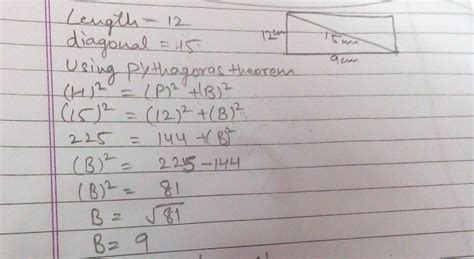 Length = 12
diagonal = 15.
Using pythagoras theorem
(H)² = (P)² + (B)²
(15)² = (12)² + (B)²
225 = 144 + (B)²
(B)² = 225 - 144
(B)² = 81
B = √81
B = 9
12cm
15cm
9cm